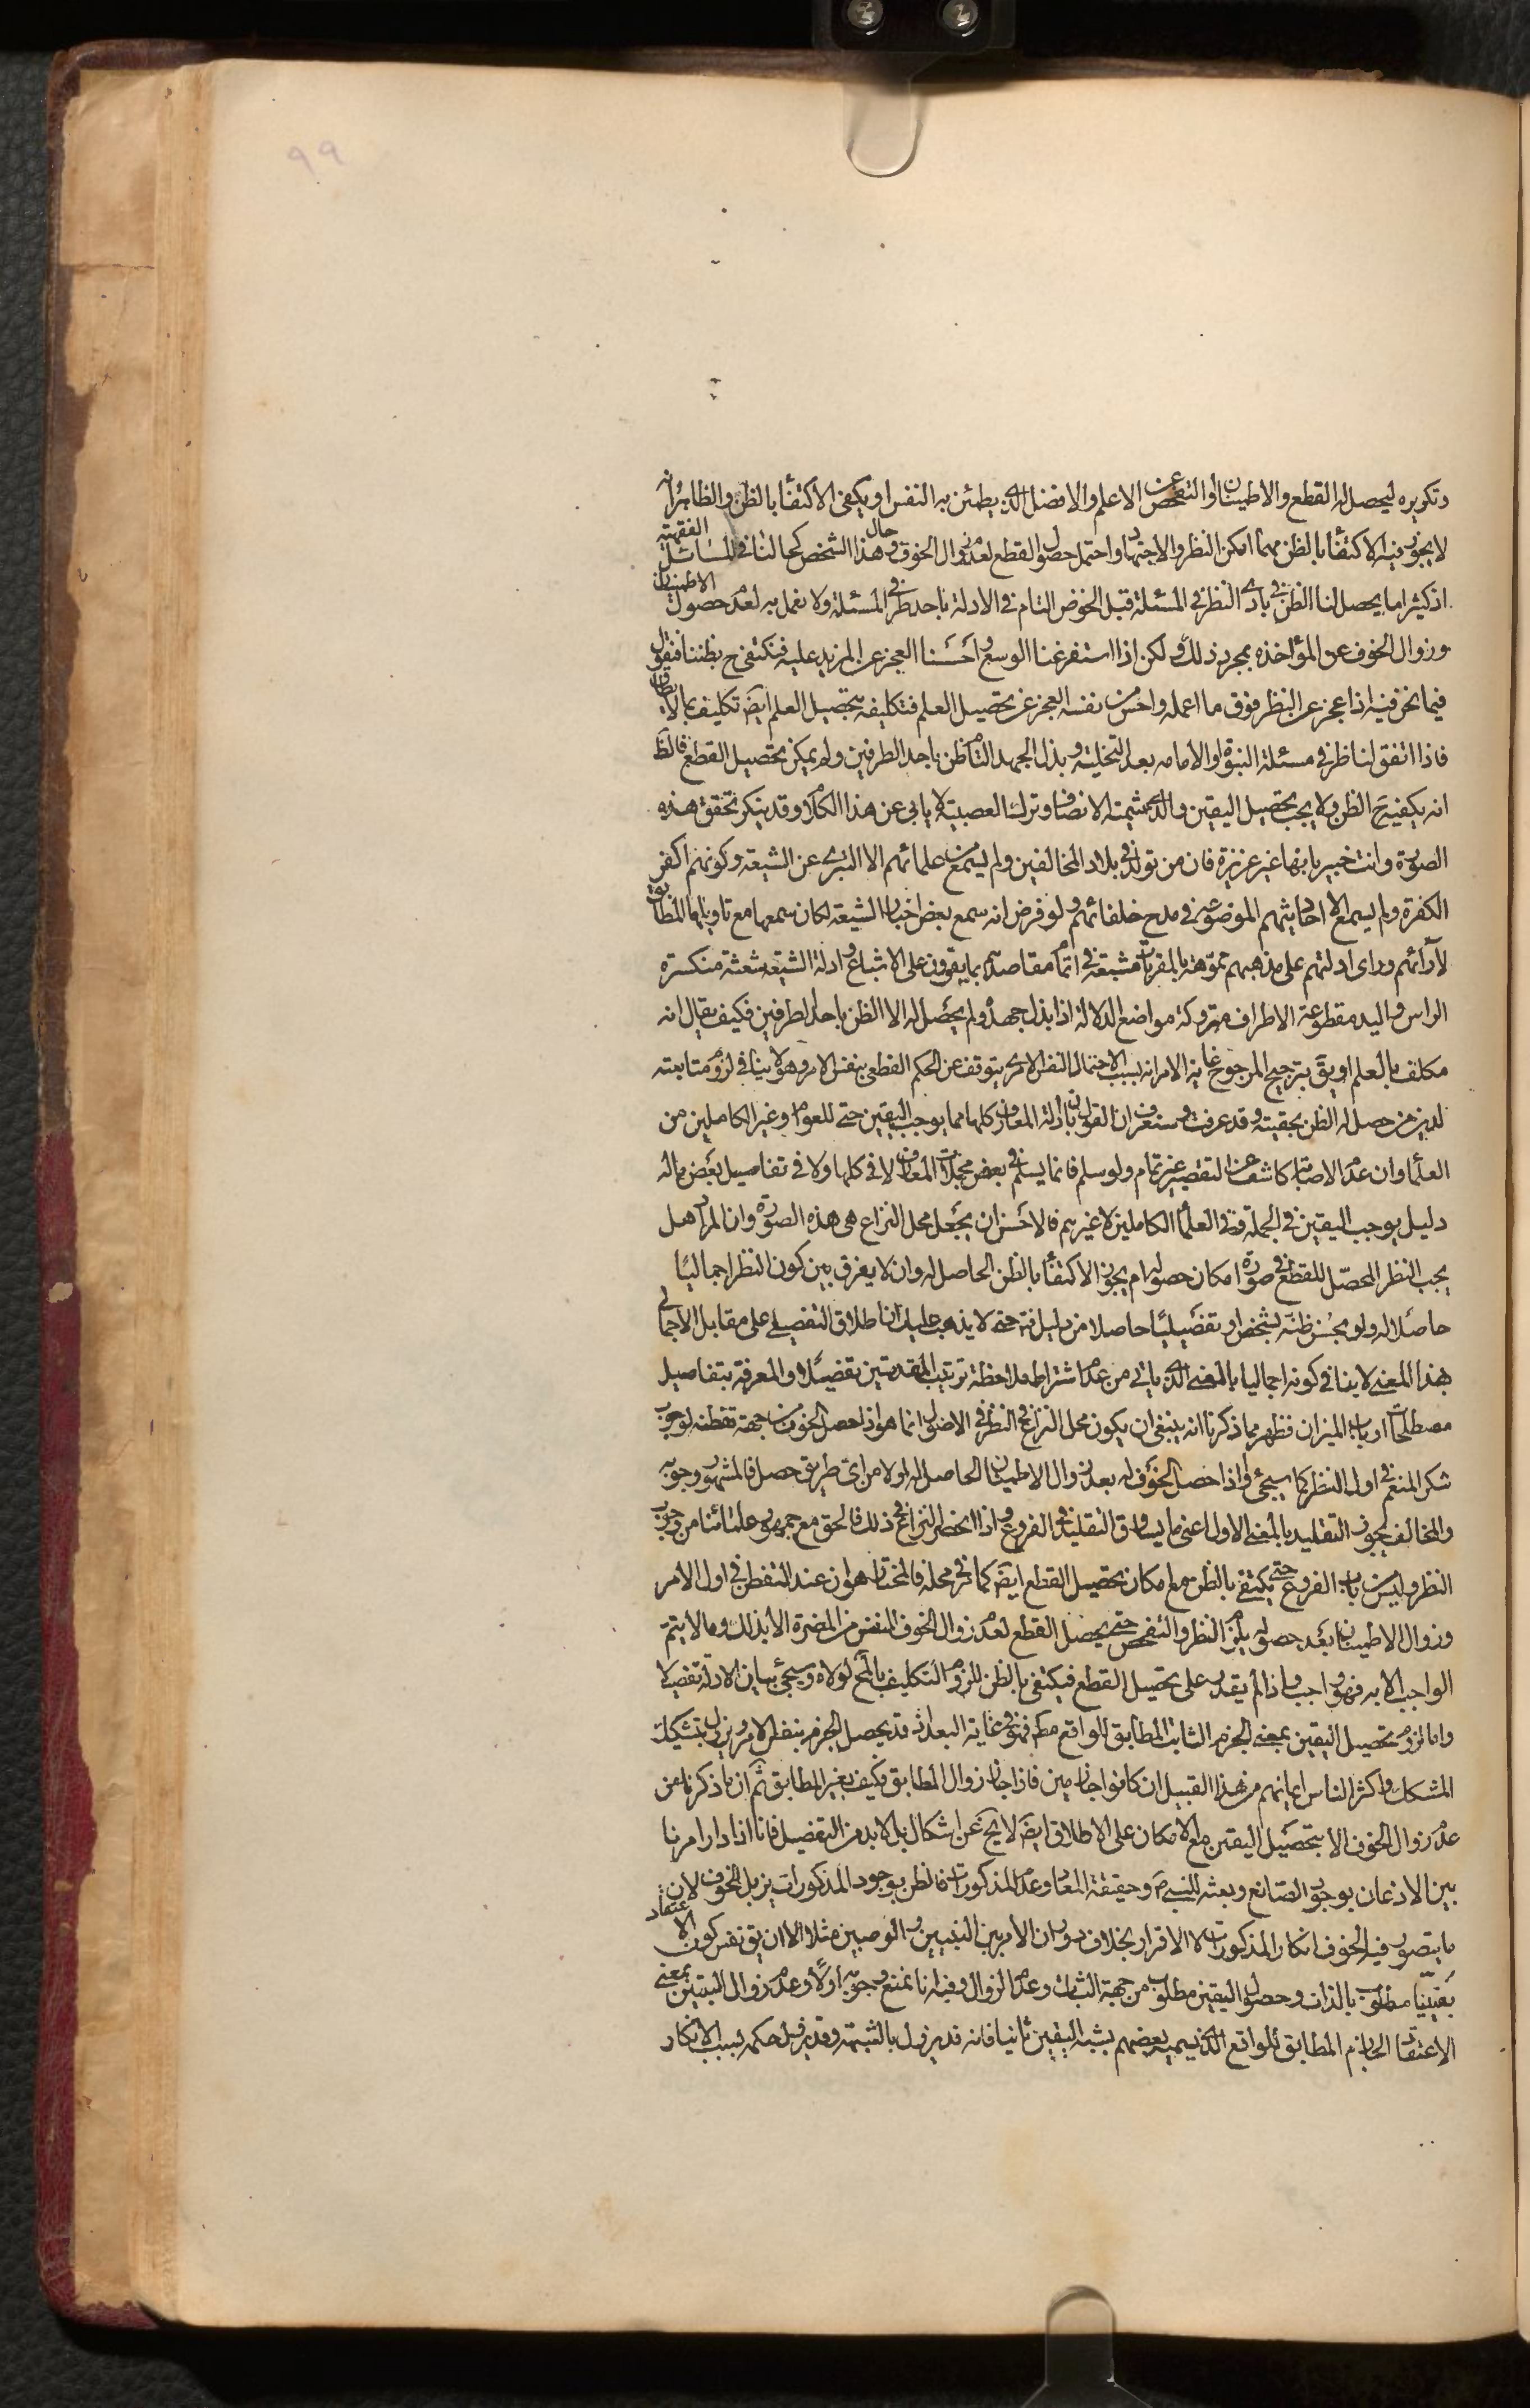 ٩٩
وتكريره ليحصل له القطع والاطمينان او التفحص عن الاعلم والافضل الذى يطمئن به النفس او يكفى الاكتفأ بالظن والظاهر انه
لا يجوز فيه الاكتفأ بالظن مهما امكن النظر والاجتهاد واحتمل حصول القطع لعدم زوال الخوف وحال هذا الشخص كحالنا فى المسائل الفقهية
اذ كثيرا ما يحصل لنا الظن فى بادى النظر فى المسئلة قبل الخوض التام فى الادلة باحد طرفى المسئلة ولا نعمل به لعدم حصول الاطمينان
وزوال الخوف عن المؤاخذه بمجرد ذلك ولكن اذا استفرغنا الوسع واحسسنا العجز عن المزيد عليه فنكتفى ح بظننا فنقول
فيما نحن فيه اذا عجز عن النظر فوق ما اعمله واحس من نفسه العجز عن تحصيل العلم فتكليفه بتحصيل العلم ايضً تكليف بما لا يطاق
فاذا اتفق لنا ظر فى مسئلة النبوة او الامامه بعد التخلية وبذل الجهد التام ظن باحد الطرفين ولم يمكن تحصيل القطع فالظ
انه يكفيه ح الظن ولا يجب تحصيل اليقين والذى شيمته الانصاف وترك العصبية لا يابى عن هذا الكلام وقد ينكر تحقق هذه
الصورة وانت خبير بانها غير عزيزة فان من تولد فى بلاد المخالفين ولم يسمع من علمائهم الا التبرى عن الشيعة وكونهم اكفر
الكفرة ولم يسمع الا احاديثهم الموضوعه فى مدح خلفائهم ولو فرض انه سمع بعض اخبار الشيعة لكان سمعها مع تاويلها المطابق
لآرائهم وراى ادلتهم على مذهبهم مموّهة بالمقربات مشبعة فى اتمام مقاصدهم بما يقوون على الاشباع وادلة الشيعة شعثة منكسرة
الراس واليد مقطوعة الاطراف متروكة مواضع الدلالة اذا بذل جهده ولم يحصل له الا الظن باحد الطرفين فكيف يقال انه
مكلف بالعلم او يقَ بترجيح المرجوح غاية الامر انه بسبب الاحتمال النفس الامرى يتوقف عن الحكم القطعى بنفس الامر وهو لا ينافى لزوم متابعته
لدين من حصل له الظن بحقيته وقد عرفت وستعرف ان القول بان ادلة المعارف كلها مما يوجب اليقين حتى للعوام وغير الكاملين من
العلمأ وان عدم الاصابة كاشف عن التقصير غير تمام ولو سلم فانما يسلم فى بعض مجملات المعارف لا فى كلها ولا فى تفاصيل بعض ماله
دليل يوجب اليقين فى الجملة وفى العلمأ الكاملين لا غيرهم فالاحسن ان يجعل محل النزاع هى هذه الصورة وان المراد هل
يجب النظر المحصّل للقطع فى صورة امكان حصوله ام يجوز الاكتفأ بالظن الحاصل له وان لا يفرق بين كون النظر اجماليًا
حاصلا له ولو بحُسن ظنّه بشخص او تفصيليًا حاصلا من دليل انه حتى لا يذهب عليك ان اطلاق التفصيلى على مقابل الاجمالى
بهذا المعنى لا ينافى كونه اجماليا بالمعنى الذى ياتى من عدم اشتراط ملاحظة ترتيب المقدمتين تفصيلا والمعرفة بتفاصيل
مصطلحات ارباب الميزان فظهر مما ذكرنا انه ينبغى ان يكون محل النزاع فى النظر فى الاصول انما هو اذا حصل الخوف من جهة تفطنه لوجوب
شكر المنعم فى اول النظر كما سيجئ او اذا حصل الخوف له بعد زوال الاطمينان الحاصل له اولا من اى طريق حصل فالمشهور وجوبه
والمخالف يجوز التقليد بالمعنى الاول اعنى ما يساوق التقليد فى الفروع واذا انحصر النزاع فى ذلك فالحق مع جمهور علمائنا من وجوب
النظر وليس باب الفروع حتى يكتفى بالظن مع امكان تحصيل القطع ايضً كما فى محله فالمختار هو ان عند التفطن فى اول الامر
وزوال الاطمينان بعد حصوله يلزم النظر والتفحص حتى يحصل القطع لعدم زوال الخوف النفس من المضرة الا بذلك وما لا يتم
الواجب الا به فهو واجب واذا لم يقدر على تحصيل القطع فيكتفى بالظن للزوم التكليف بالمح لولاه وسيجئ بيان الادلة تفصيلا
واما لزوم تحصيل اليقين بمعنى الجزم الثابت المطابق للواقع مطَ فهو فى غاية البعد اذ قد يحصل الجزم بنفس الامر ويزول بتشكيك
المشكك واكثر الناس ايمانهم من هذا القبيل ان كانوا جازمين فاذا جاز زوال المطابق فكيف بغير المطابق ثم ان ما ذكرنا من
عدم زوال الخوف الا بتحصيل اليقين مع الامكان على الاطلاق ايضً لا يخ عن اشكال بل لا بد من التفصيل فانا اذا دار امرنا
بين الاذعان بوجود الصانع وبعثه للنبىّ صَ وحقيقة المعاد وعدم المذكورات فالظن بوجود المذكورات يزيل الخوف لان
ما يتصور فيه الخوف انكار المذكورات لا الاقرار بخلاف دوران الامر بين النبيين والوصيين مثلا الا ان يق نفس كون الاعتقاد
يقينيّا مطلوب بالذات وحصول اليقين مطلوب من جهة الثبات وعدم الزوال وفيه انا نمنع وجوبه اولاً وعدم زوال اليقين بمعنى
الاعتقاد الجازم المطابق للواقع الذى يسميه بعضهم بشبه اليقين ثانيا فانه قد يزول بالشبهة وقد يزول حكمه بسبب الانكار